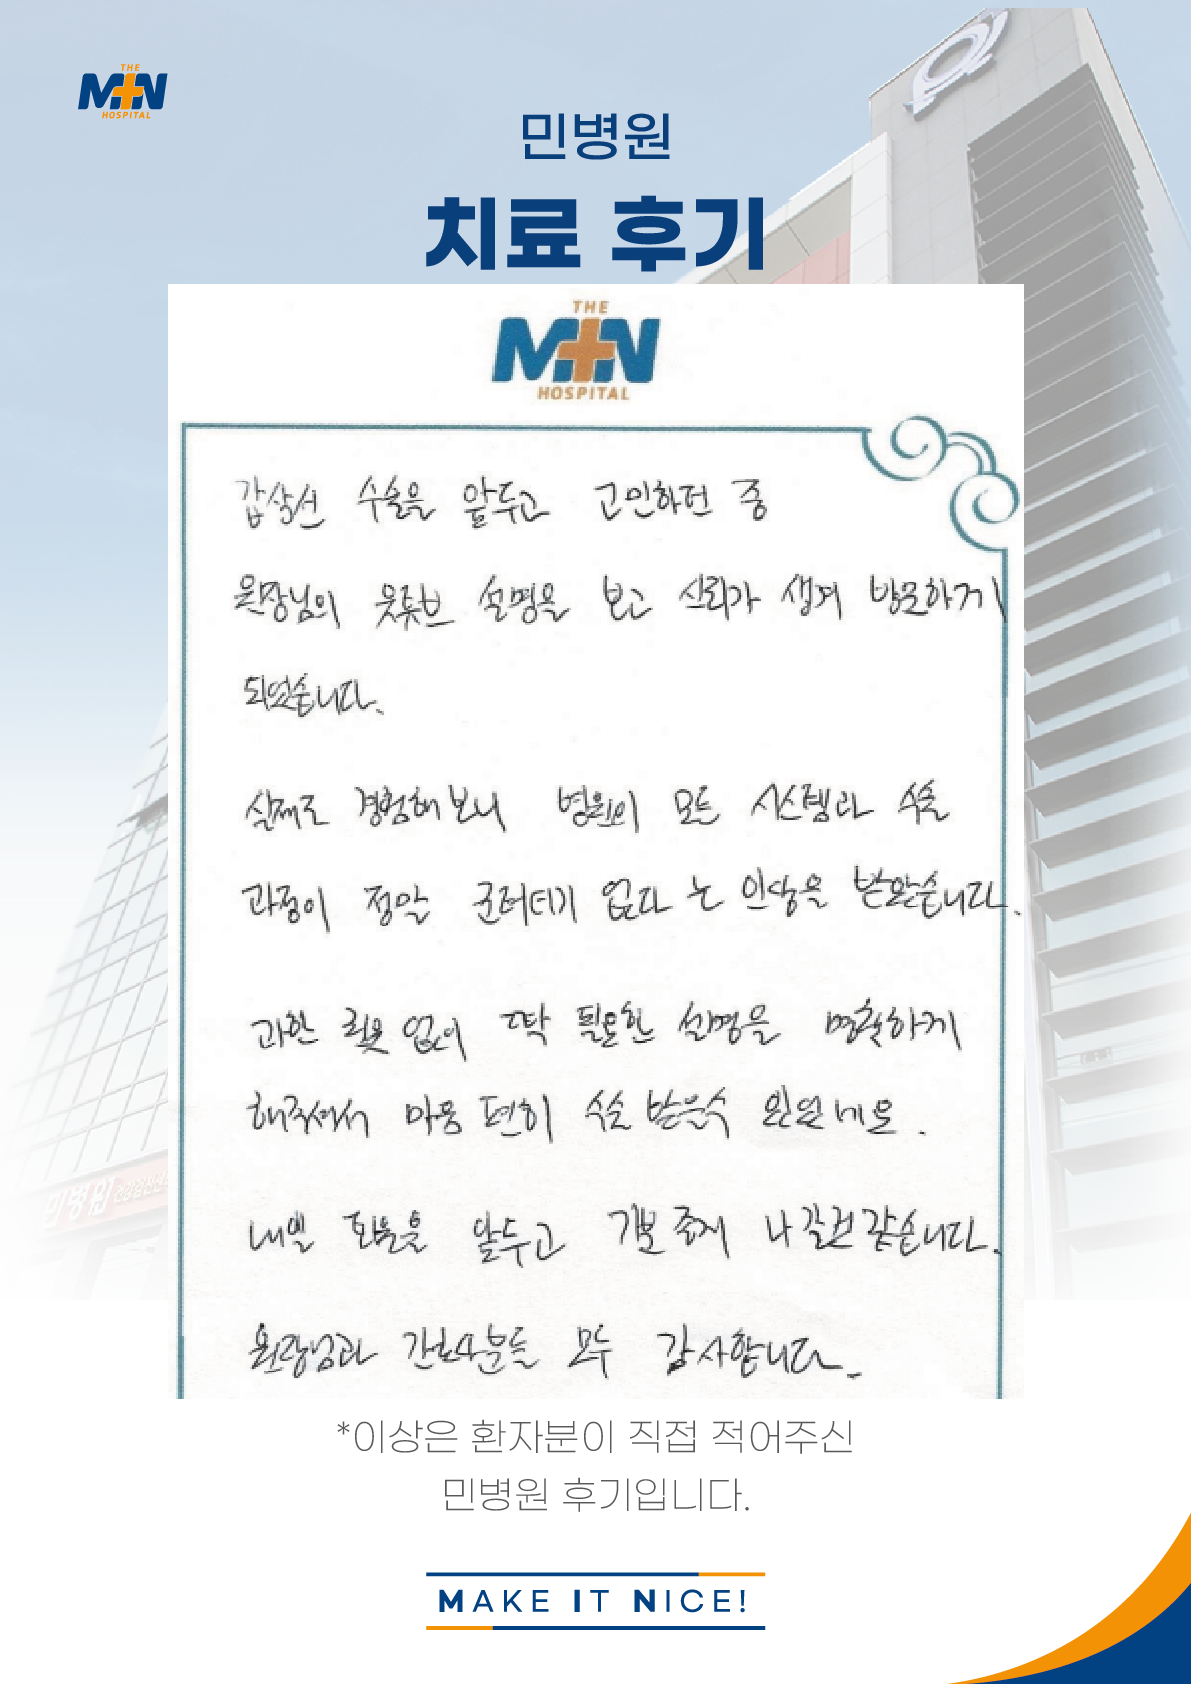 THE
MIN
HOSPITAL
민병원
치료 후기
THE
MIN
HOSPITAL
갑상선 수술을 앞두고 고민하던 중
원장님의 유튜브 설명을 보고 신뢰가 생겨 방문하게
되었습니다.
실제로 경험해보니 병원의 모든 시스템과 수술
과정이 정말 군더더기 없다 는 인상을 받았습니다.
과한 것 없이 딱 필요한 설명을 명확하게
해주셔서 마음 편히 수술 받을수 있었네요.
내일 퇴원을 앞두고 기분 좋게 나갈것 같습니다.
원장님과 간호사분들 모두 감사합니다.
*이상은 환자분이 직접 적어주신
민병원 후기입니다.
MAKE IT NICE!
민병원